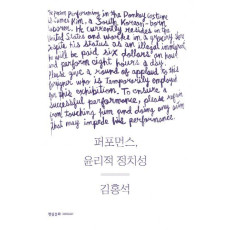 The person performing in the Donkey costume
is James Kim, a South Korean-born
laborer. He currently resides in the
United States and works in a grocery store
despite his status as an illegal immigrant.
He will be paid six dollars an hour
and perform eight hours a day.
Please give a round of applause to this
who is temporarily employed
for this exhibition. To ensure a
successful performance, please refrain
from touching him and doing any action
that may impede his performance.
퍼포먼스,
윤리적 전치성
김홍석